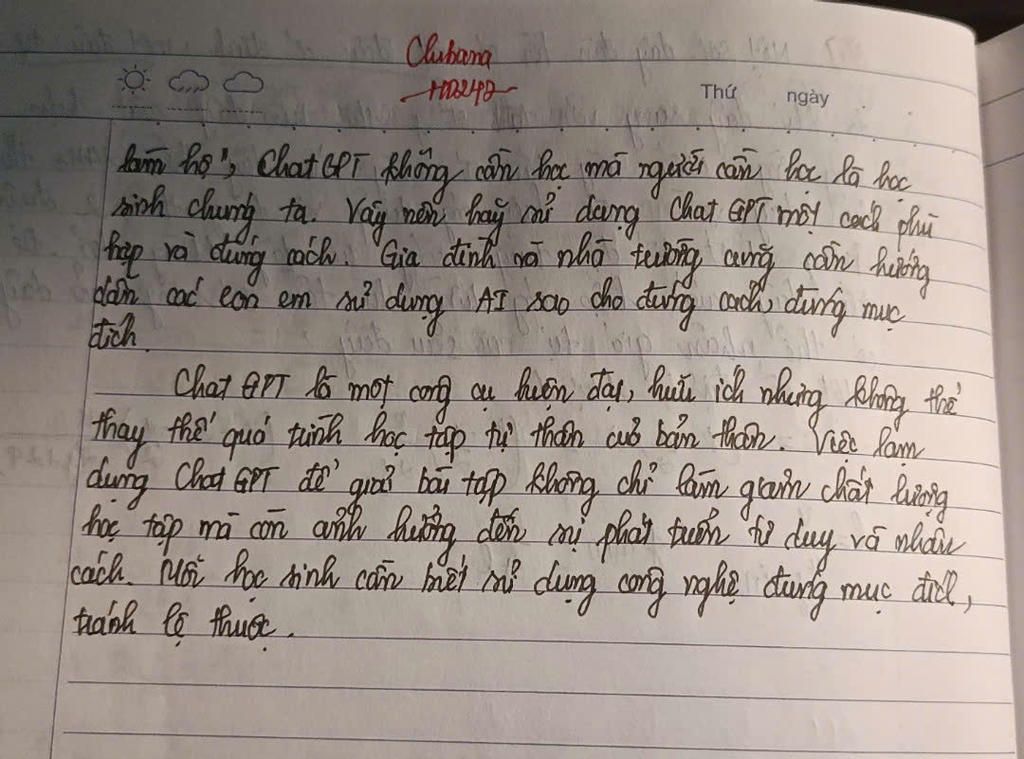 Clubana
HD242
Thứ ngày
làm hộ", Chat GPT không cần học mà người cần học là học
sinh chúng ta. Vậy nên hãy sử dụng Chat GPT một cách phù
hợp và đúng cách. Gia đình và nhà trường cũng cần hướng
dẫn các con em sử dụng AI sao cho đúng cách, đúng mục
đích.
Chat GPT là một công cụ hiện đại, hữu ích nhưng không thể
thay thế quá trình học tập tự thân của bản thân. Việc lạm
dụng Chat GPT để giải bài tập không chỉ làm giảm chất lượng
học tập mà còn ảnh hưởng đến sự phát triển tư duy và nhân
cách. Mỗi học sinh cần biết sử dụng công nghệ đúng mục đích,
tránh lệ thuộc.